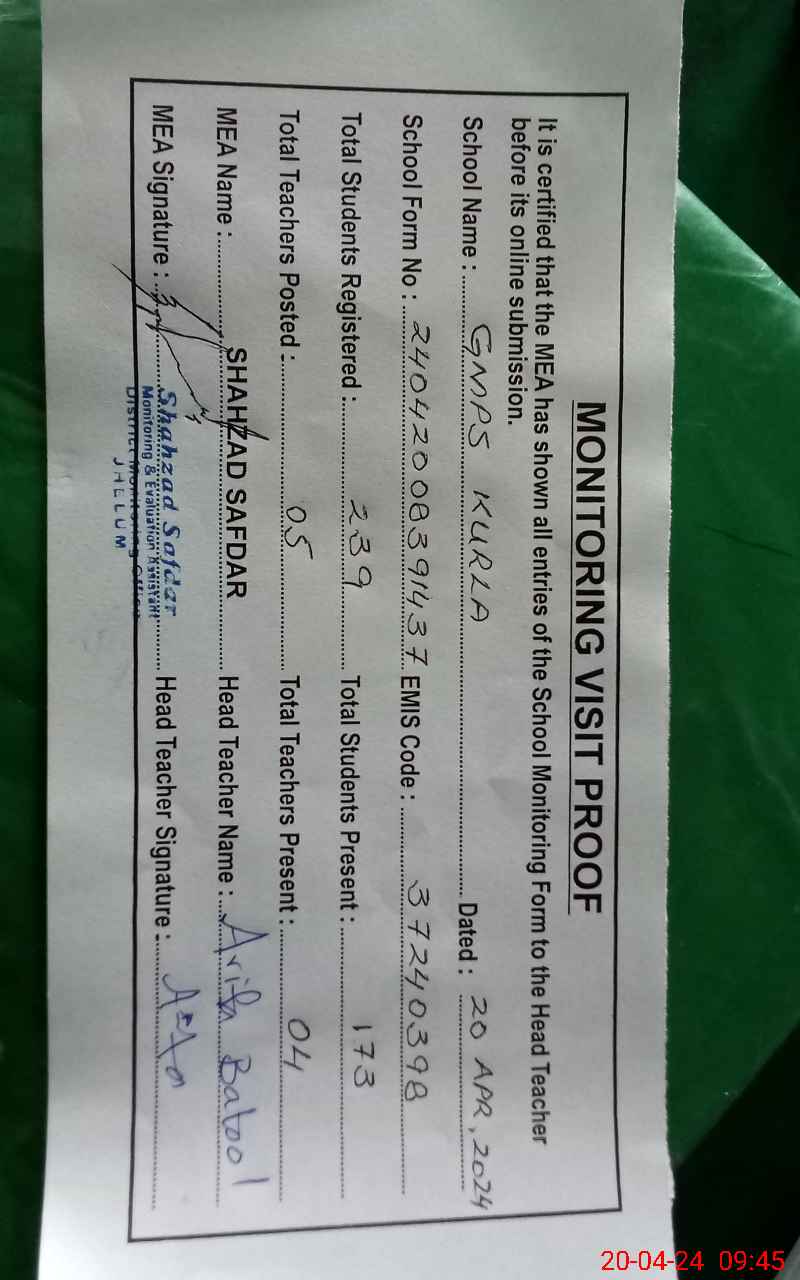 MONITORING VISIT PROOF
It is certified that the MEA has shown all entries of the School Monitoring Form to the Head Teacher
before its online submission.
School Name : GMPS KURLA Dated : 20 APR, 2024
School Form No : 24042008391437 EMIS Code : 37240398
Total Students Registered : 239 Total Students Present : 173
Total Teachers Posted : 05 Total Teachers Present : 04
MEA Name : SHAHZAD SAFDAR Head Teacher Name : Arifa Batool
MEA Signature : Head Teacher Signature :
Shahzad Safdar
Monitoring & Evaluation Assistant
District Monitoring Office
JHELUM
20-04-24 09:45